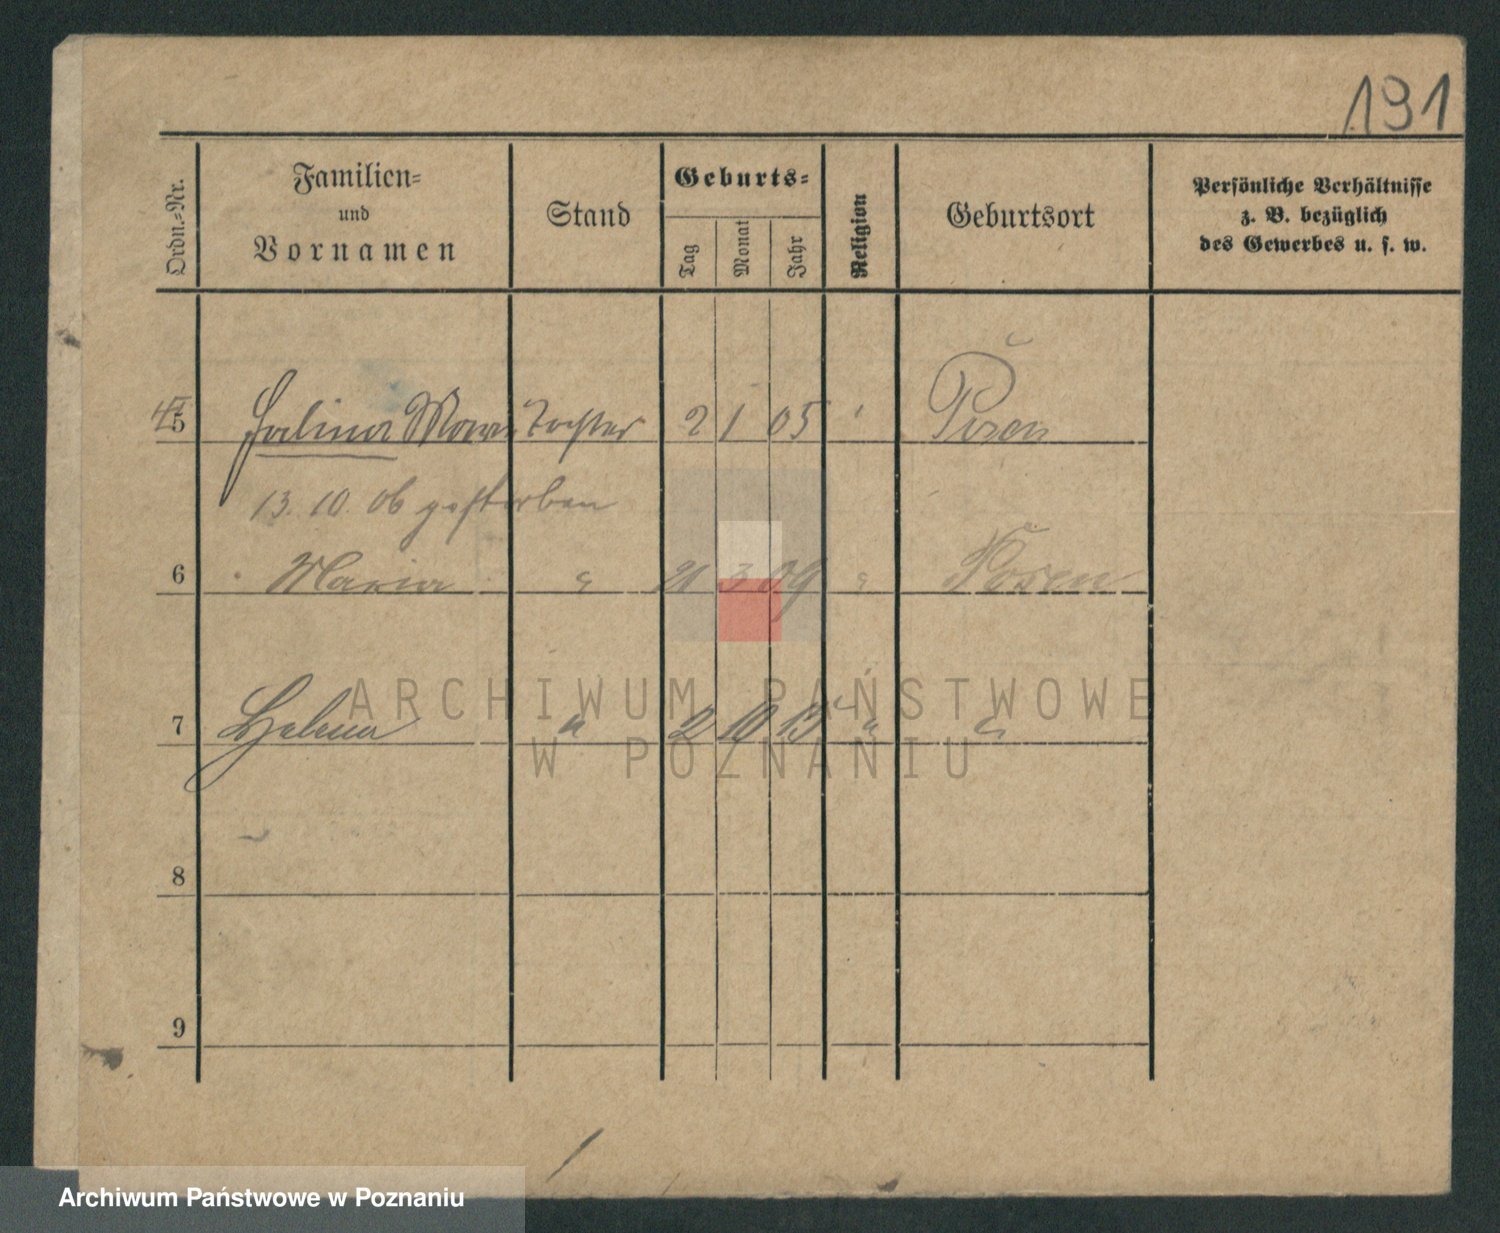 191
Ordn.=Nr.
Familien=
und
Vornamen
Stand
Geburts=
Tag
Monat
Jahr
Religion
Geburtsort
Persönliche Verhältnisse
z. B. bezüglich
des Gewerbes u. s. w.
5 Halina Maria Tochter 2 1 05 Posen
13. 10. 06 gestorben
6 Maria " 21 3 09 " Posen
7 Helena " 2 10 13 " "
8
9
ARCHIWUM PAŃSTWOWE
W POZNANIU
Archiwum Państwowe w Poznaniu